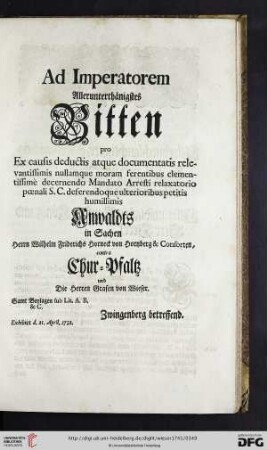 Ad Imperatorem
Allerunterthänigstes
Bitten
pro
Ex causis deductis atque documentatis rele-
vantissimis nullamque moram ferentibus clemen-
tissimè decernendo Mandato Arresti relaxatorio
pœnali S. C. deferendoque ulterioribus petitis
humillimis
Anwaldts
in Sachen
Herrn Wilhelm Friderichs Horneck von Hornberg & Consorten,
contra
Chur-Pfaltz
und
Die Herren Grafen von Wieser.
Samt Beylagen sub Lit. A. B.
& C.
Zwingenberg betreffend.
Exhibitum d. 21. April. 1732.
http://digi.ub.uni-heidelberg.de/diglit/wieser1741/0349
© Universitätsbibliothek Heidelberg
Gefördert durch die
DFG